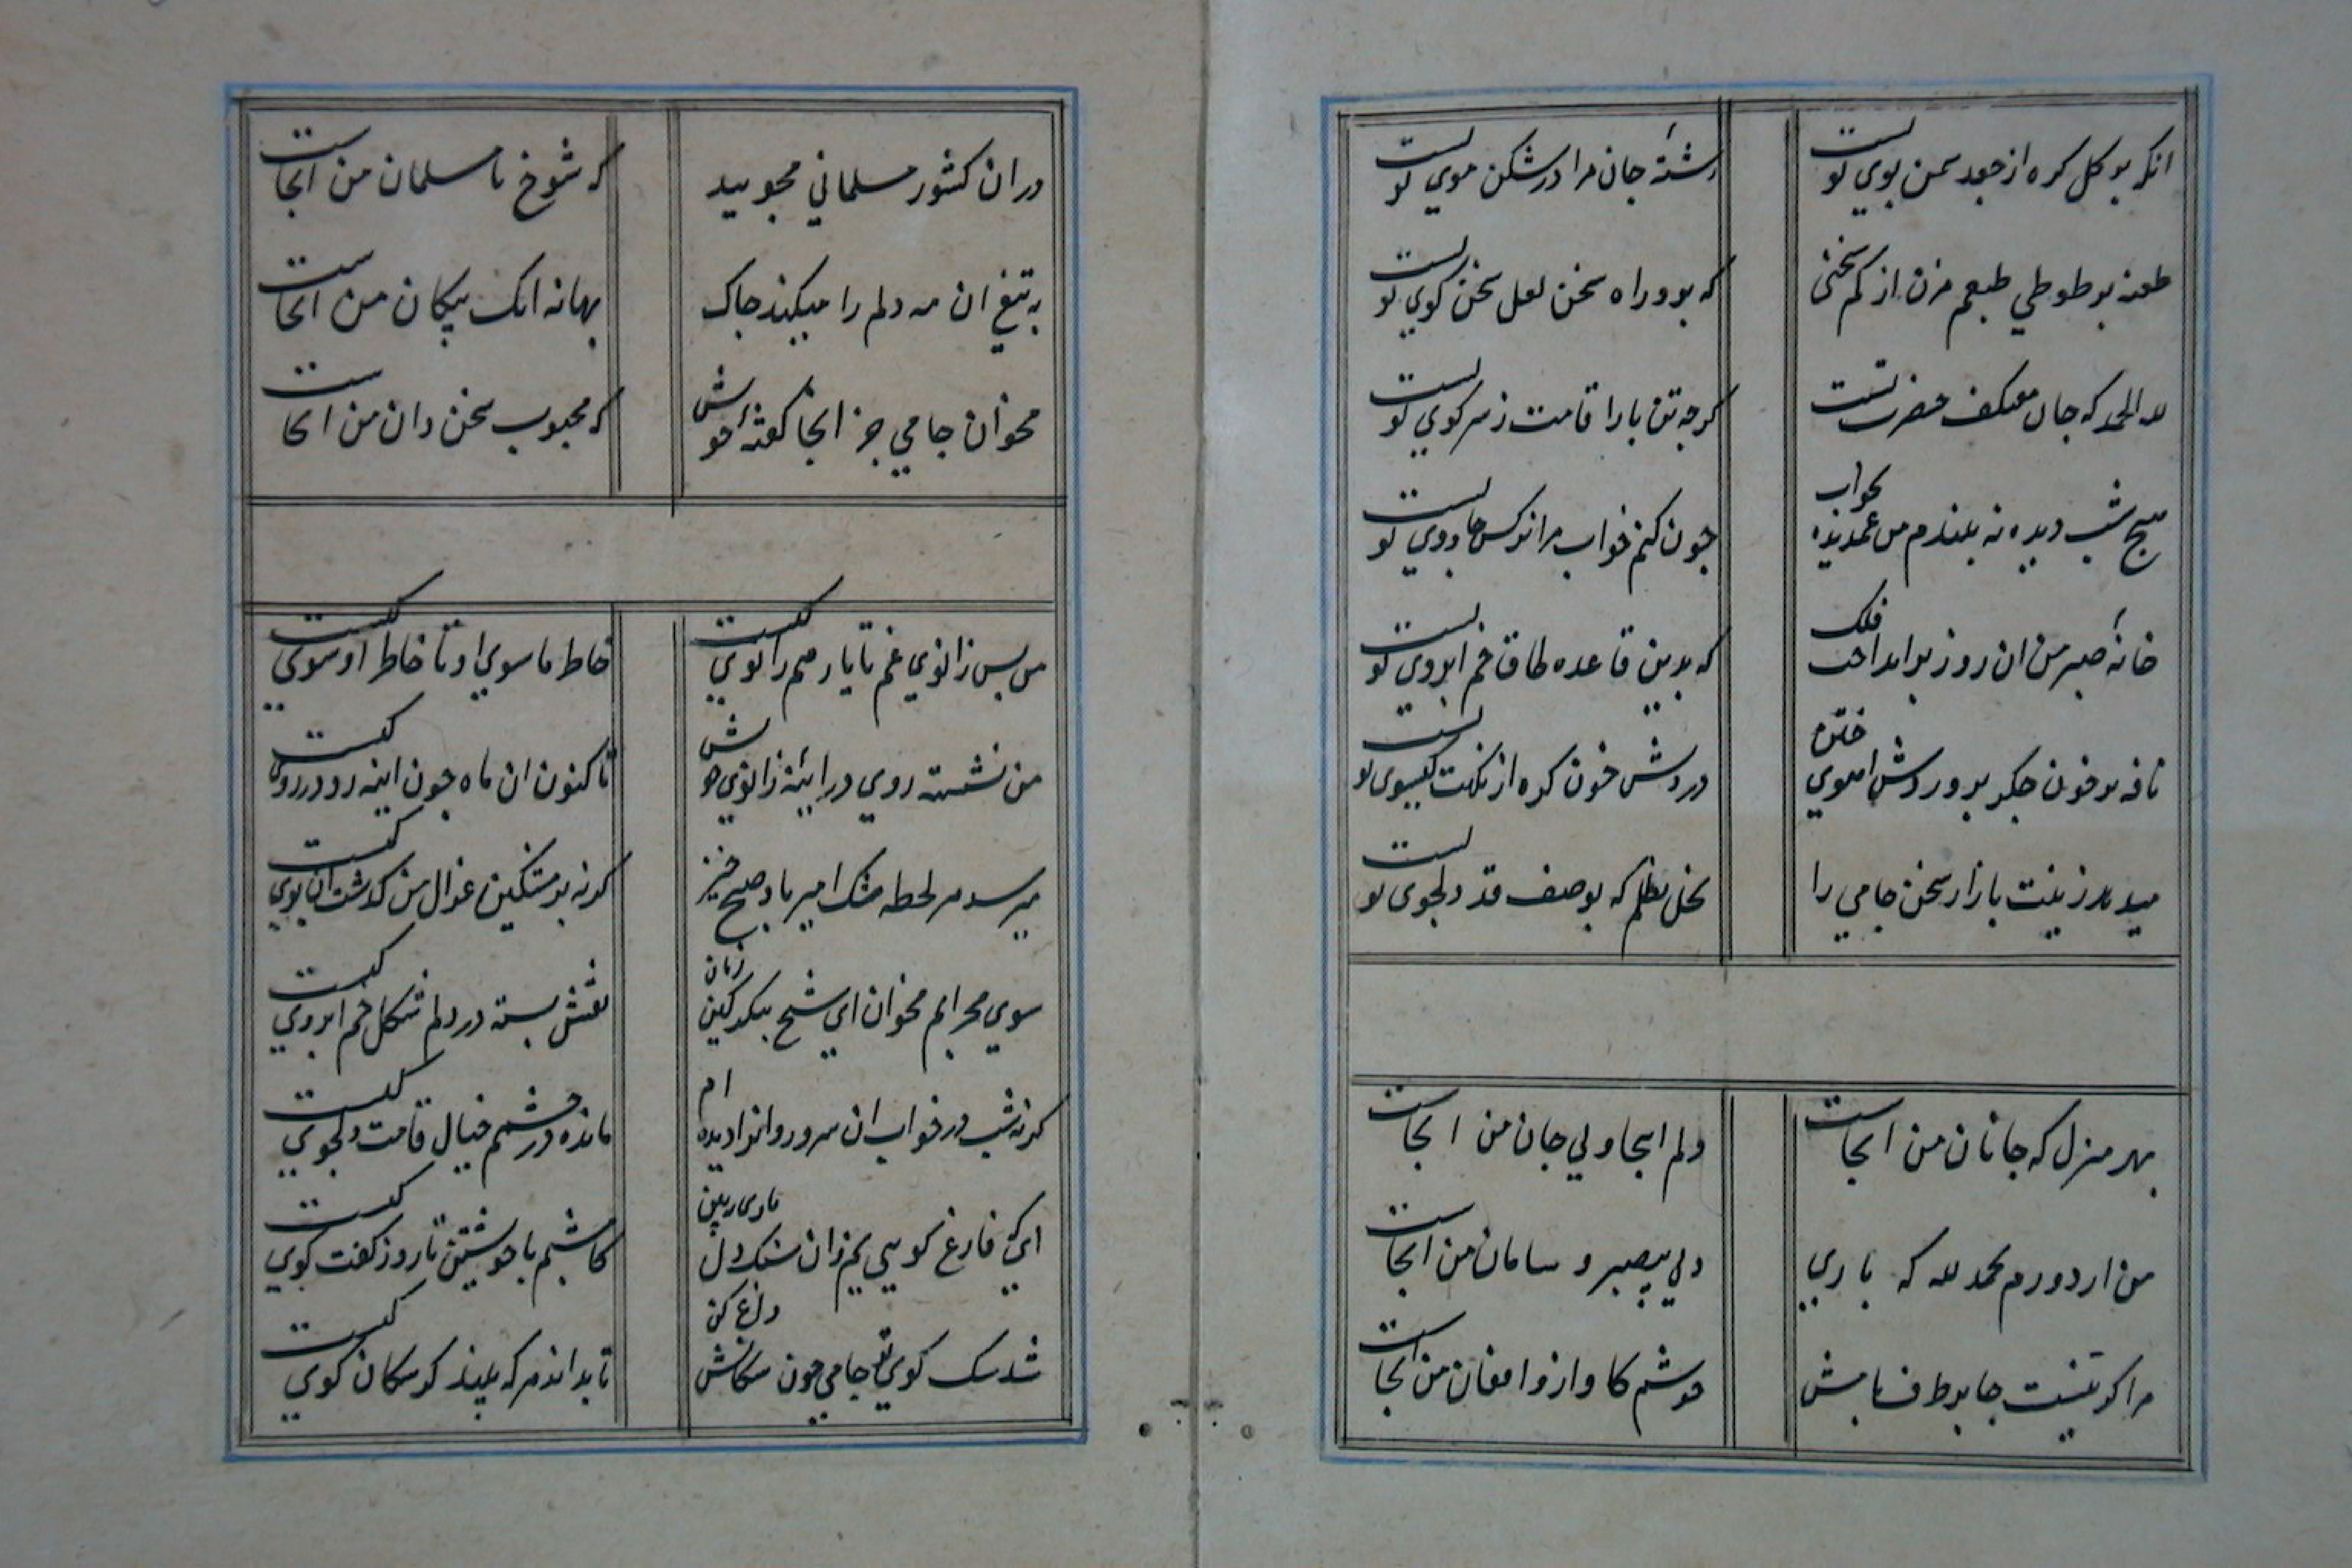 انکه بر کل کره از جعد سمن بوی تو بست
رشتهٔ جان مرا در شکن موی تو بست
طعنه بر طوطی طبعم مزن از کم سخنی
که برو راه سخن لعل سخن کوی تو بست
لله الحمد که جان معتکف حضرت تست
کرچه تن بار اقامت ز سر کوی تو بست
هیچ شب دیده نه بندم من غمدیده بخواب
چون کنم خواب مرا نرکس جادوی تو بست
خانهٔ صبر من ان روز بر انداخت فلک
که بدین قاعده طاق خم ابروی تو بست
نافه بر خون جکر پروردش اهوی ختن
در دلش خون کره از نکهت کیسوی تو بست
میدهد زینت بازار سخن جامی را
نخل نظم که بوصف قد دلجوی تو بست
بهر منزل که جانان من انجاست
دلم انجا ولی جان من انجاست
من ار دورم بحمد لله که باری
دل بیصبر و سامان من انجاست
مرا کر نیست جا بر طرف بامش
خوشم کاواز و افغان من انجاست
در ان کشور مسلمانی مجویید
که شوخ نا مسلمان من انجاست
به تیغ ان مه دلم را میکند چاک
بهانه انک پیکان من انجاست
مخوان جامی جز انجا کفتهٔ خویش
که محبوب سخن دان من انجاست
من پس زانوی غم تا یار هم زانوی کیست
خاطر ما سوی او تا خاطر او سوی کیست
من نشسته روی در ایینهٔ زانوی خویش
تا کنون ان ماه چون اینه رو در روی کیست
میرسد هر لحظه مشک امیز باد صبح خیز
کرنه بر مشکین غزال من کذشت ان بوی کیست
سوی محرابم مخوان ای شیخ بیکدکین زمان
نقش بسته در دلم شکل خم ابروی کیست
کرنه شب در خواب ان سرو روانرا دیده ام
مانده در چشمم خیال قامت دلجوی کیست
ای که فارغ کویی یم زان سنک دل
کاشبم با خویشتن تا روز کفت کوی کیست
شد سک کوی تو جامی چون سکانش داغ کن
تا بداند هر که بیند کز سکان کوی کیست